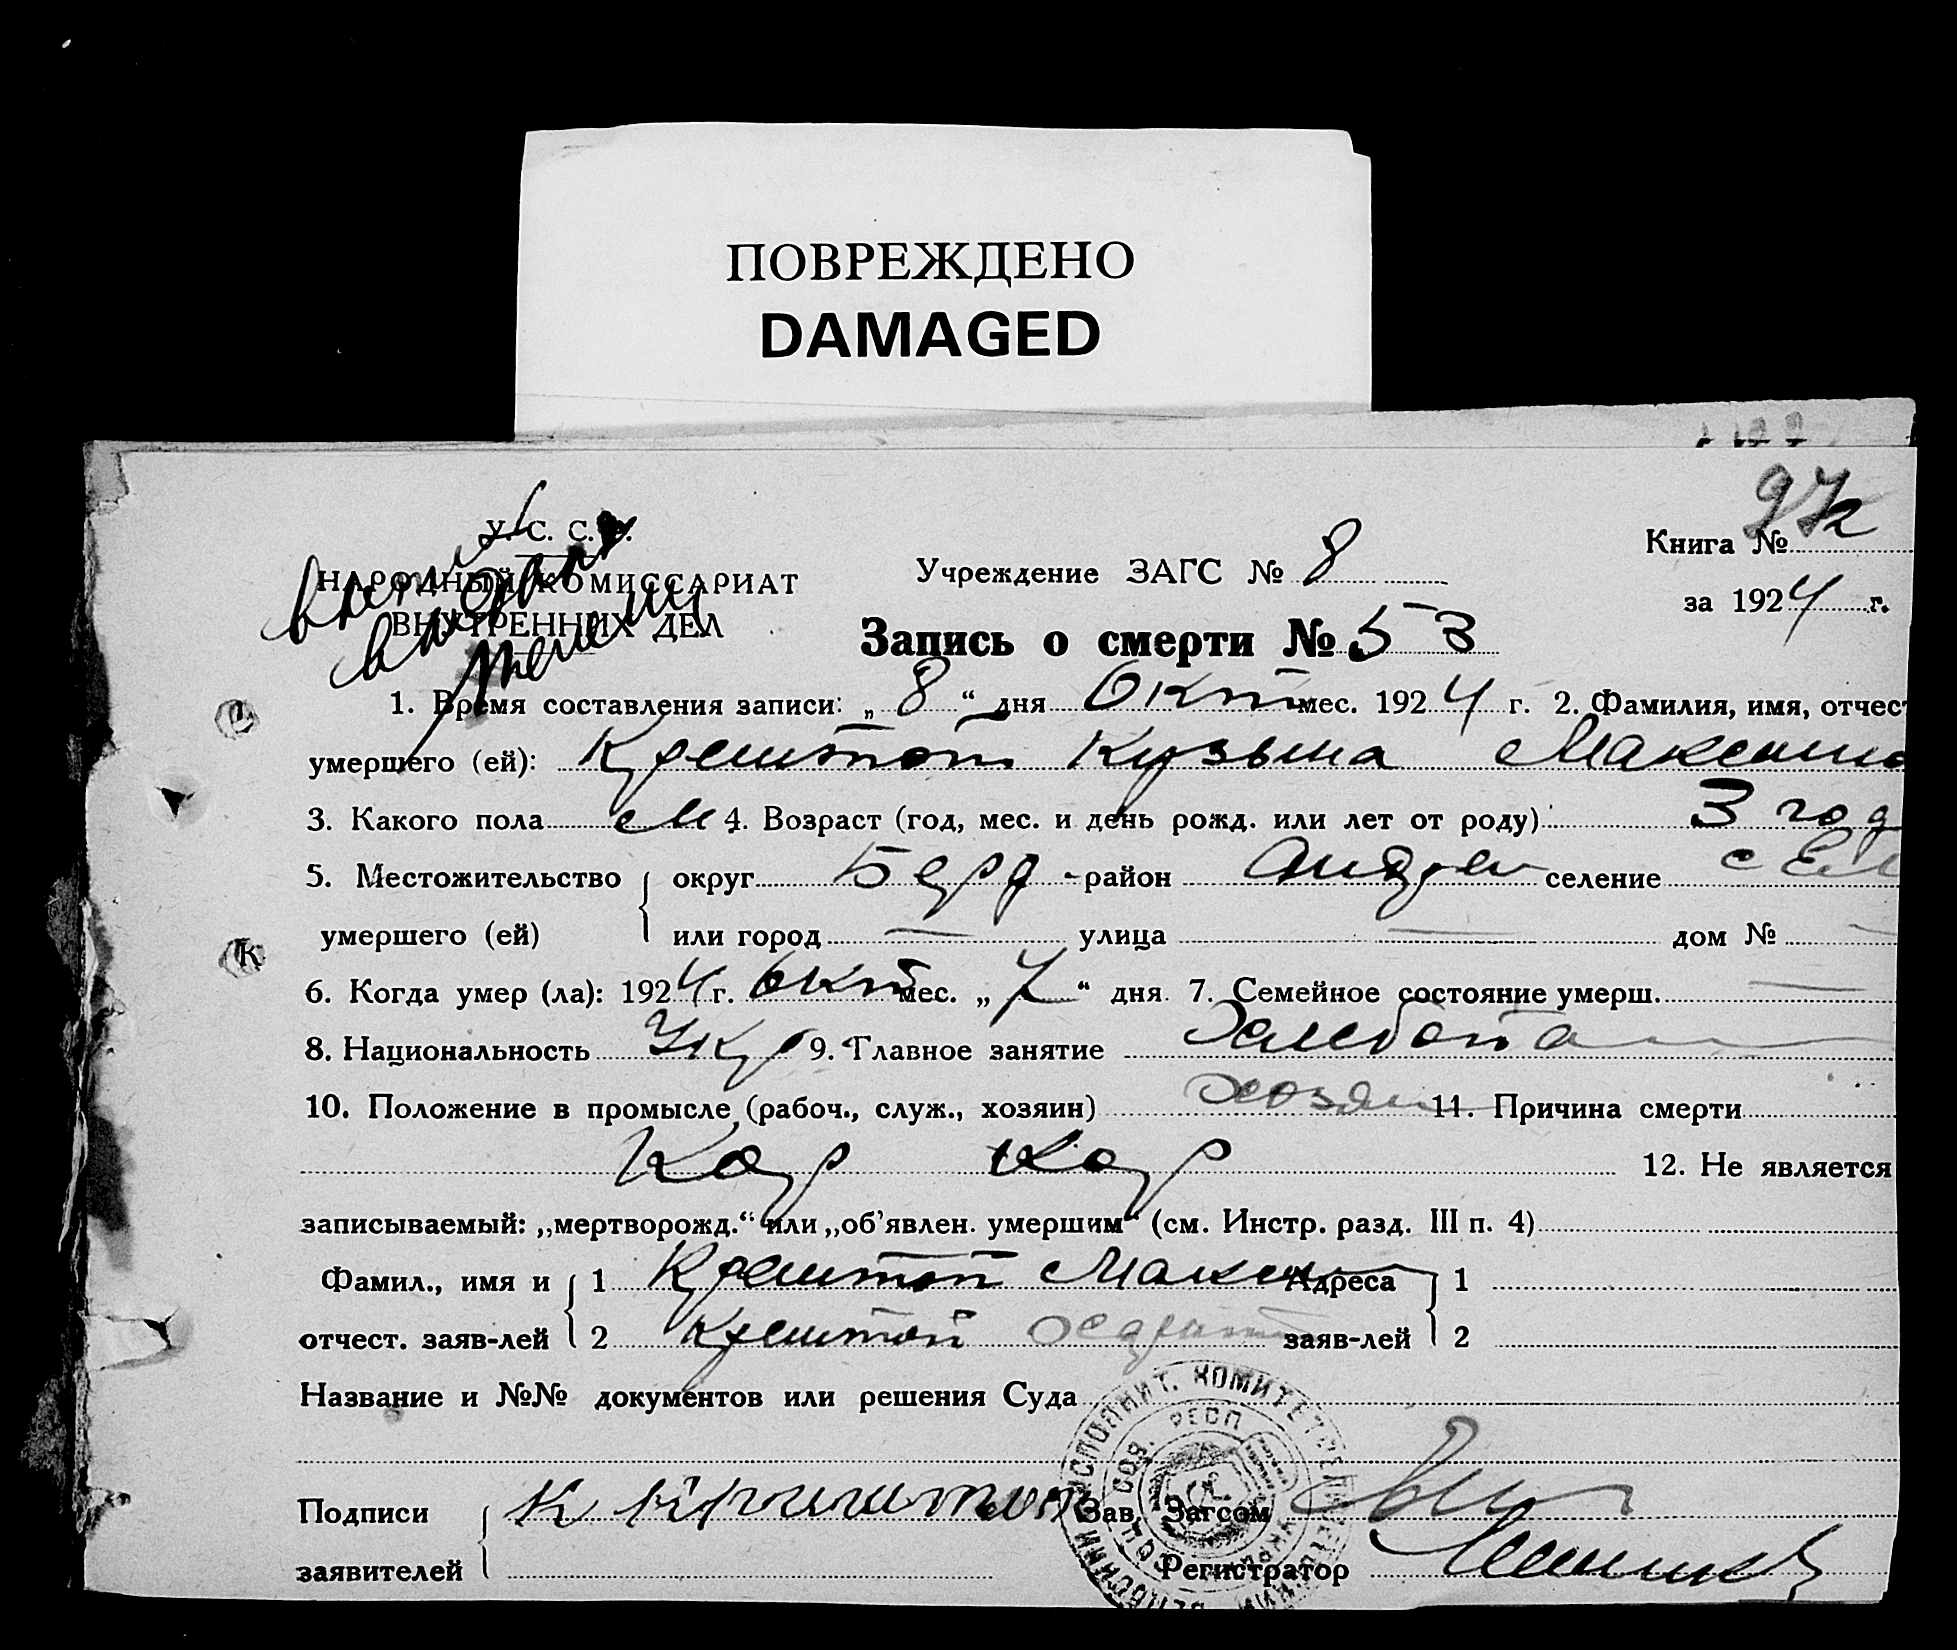 ПОВРЕЖДЕНО
DAMAGED
Книга № 97к
У. С. С. Р.
НАРОДНЫЙ КОМИССАРИАТ
ВНУТРЕННИХ ДЕЛ
Учреждение ЗАГС № 8
за 1924 г.
Запись о смерти № 53
1. Время составления записи: „ 8 “ дня Окт мес. 1924 г. 2. Фамилия, имя, отчест
умершего (ей): Крештоп Кузьма Максимо
3. Какого пола м 4. Возраст (год, мес. и день рожд. или лет от роду) 3 год
5. Местожительство округ Берд- район Андре селение
умершего (ей) или город — улица — дом № —
6. Когда умер (ла): 1924 г. Окт мес. „ 7 “ дня. 7. Семейное состояние умерш. —
8. Национальность Укр 9. Главное занятие Хлебопа
10. Положение в промысле (рабоч., служ., хозяин) хозяин 11. Причина смерти
12. Не является
записываемый: „мертворожд.“ или „об’явлен. умершим“ (см. Инстр. разд. III п. 4)
Фамил., имя и 1 Крештоп Максим Адреса 1
отчест. заяв-лей 2 Крештоп заяв-лей 2
Название и №№ документов или решения Суда
ИСПОЛНИТ. КОМИТЕТ
СОВ. РЕСП
Подписи Зав. Загсом
заявителей Регистратор